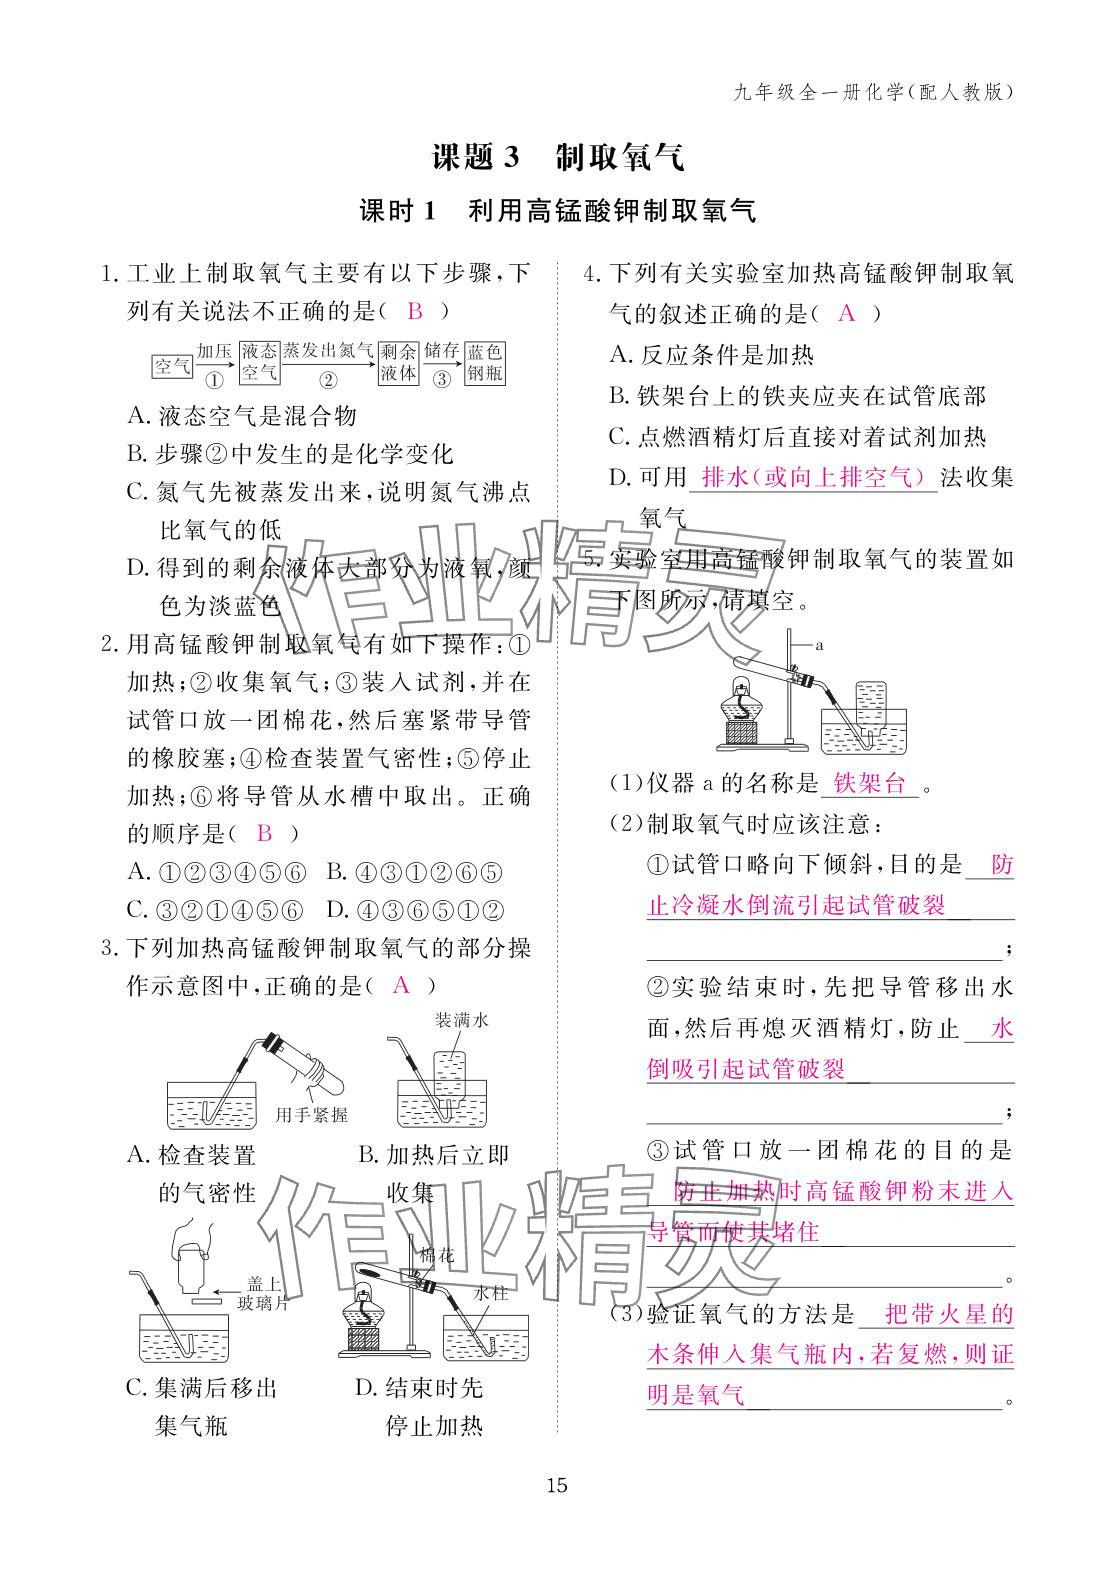 九年级全一册化学(配人教版)
课题3 制取氧气
课时1 利用高锰酸钾制取氧气
1. 工业上制取氧气主要有以下步骤,下
列有关说法不正确的是( B )
空气 加压 ① 液态空气 蒸发出氮气 ② 剩余液体 储存 ③ 蓝色钢瓶
A. 液态空气是混合物
B. 步骤②中发生的是化学变化
C. 氮气先被蒸发出来,说明氮气沸点
比氧气的低
D. 得到的剩余液体大部分为液氧,颜
色为淡蓝色
2. 用高锰酸钾制取氧气有如下操作:①
加热;②收集氧气;③装入试剂,并在
试管口放一团棉花,然后塞紧带导管
的橡胶塞;④检查装置气密性;⑤停止
加热;⑥将导管从水槽中取出。正确
的顺序是( B )
A. ①②③④⑤⑥ B. ④③①②⑥⑤
C. ③②①④⑤⑥ D. ④③⑥⑤①②
3. 下列加热高锰酸钾制取氧气的部分操
作示意图中,正确的是( A )
装满水
用手紧握
A. 检查装置 B. 加热后立即
的气密性 收集
棉花
盖上
玻璃片
水柱
C. 集满后移出 D. 结束时先
集气瓶 停止加热
4. 下列有关实验室加热高锰酸钾制取氧
气的叙述正确的是( A )
A. 反应条件是加热
B. 铁架台上的铁夹应夹在试管底部
C. 点燃酒精灯后直接对着试剂加热
D. 可用 排水(或向上排空气) 法收集
氧气
5. 实验室用高锰酸钾制取氧气的装置如
下图所示,请填空。
a
(1)仪器a的名称是 铁架台 。
(2)制取氧气时应该注意:
①试管口略向下倾斜,目的是 防
止冷凝水倒流引起试管破裂
;
②实验结束时,先把导管移出水
面,然后再熄灭酒精灯,防止 水
倒吸引起试管破裂
;
③试管口放一团棉花的目的是
防止加热时高锰酸钾粉末进入
导管而使其堵住
。
(3)验证氧气的方法是 把带火星的
木条伸入集气瓶内,若复燃,则证
明是氧气 。
作业精灵
作业精灵
15